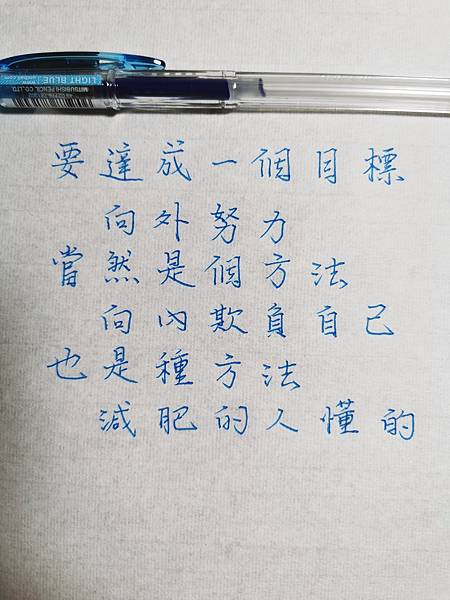 LIGHT BLUE
MITSUBISHI PENCIL CO.,LTD.
要達成一個目標
向外努力
當然是個方法
向內欺負自己
也是種方法
減肥的人懂的